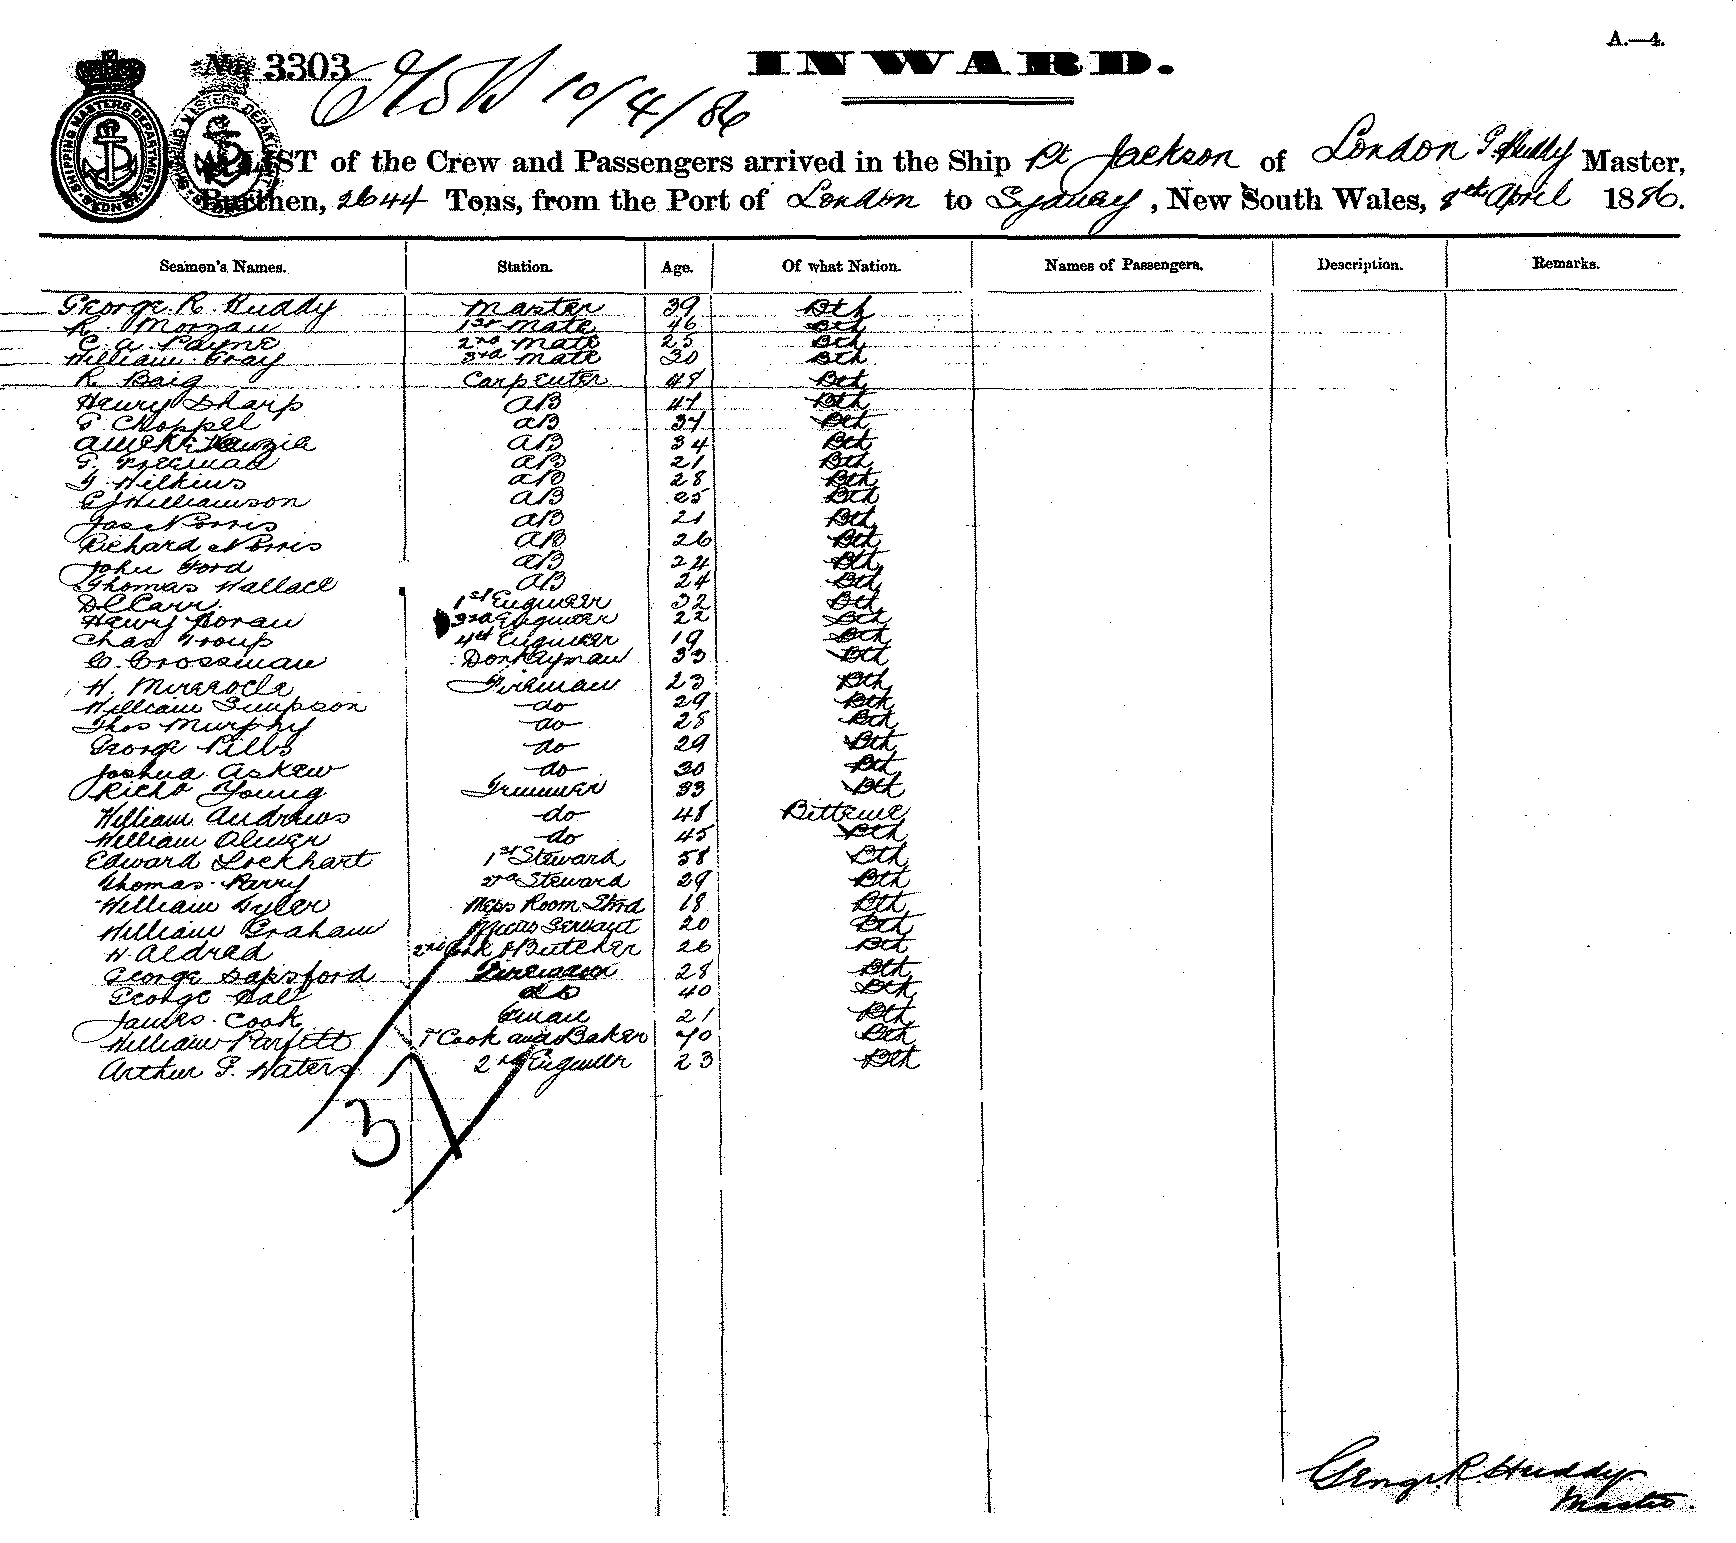 A.—4.
No. 3303
INWARD.
10/4/86
LIST of the Crew and Passengers arrived in the Ship Pt Jackson of London G. Huddy Master,
Burthen, 2644 Tons, from the Port of London to Sydney, New South Wales, 8th April 1886.
Seamen's Names. Station. Age. Of what Nation. Names of Passengers. Description. Remarks.
George R. Huddy Master 39 Bth
R. Morgan 1st Mate 46 Bth
C. A. Payne 2nd Mate 25 Bth
William Gray 3rd Mate 30 Bth
R. Baig Carpenter 48 Bth
Henry Sharp AB 41 Bth
G Choppel AB 37 Bth
AB 34 Bth
G. Freeman AB 21 Bth
Wilkins AB 28 Bth
Williamson AB 25 Bth
Jas Norris AB 21 Bth
Richard Norris AB 26 Bth
John Ford AB 24 Bth
Thomas Wallace AB 24 Bth
D C Carr 1st Engineer 32 Bth
Henry Doran 3rd Engineer 22 Bth
Chas Troup 4th Engineer 19 Bth
C. Crossman Donkeyman 33 Bth
H. Fireman 23 Bth
William Simpson do 29 Bth
Thos Murphy do 28 Bth
George Pills do 29 Bth
Joshua Askew do 30 Bth
Richd Young Trimmer 33 Bth
William Andrews do 48
William Oliver do 45 Bth
Edward Lockhart 1st Steward 58 Bth
Thomas Parry 2nd Steward 29 Bth
William Tyler Mess Room Stwd 18 Bth
William Graham Servant 20 Bth
H. Aldred 2nd Cook & Butcher 26 Bth
George Sapsford Fireman 28 Bth
George Hall do 40 Bth
James Cook 21 Bth
William Parfett 1st Cook and Baker 40 Bth
Arthur G. Waters 2nd Engineer 23 Bth
37
George R. Huddy
Master